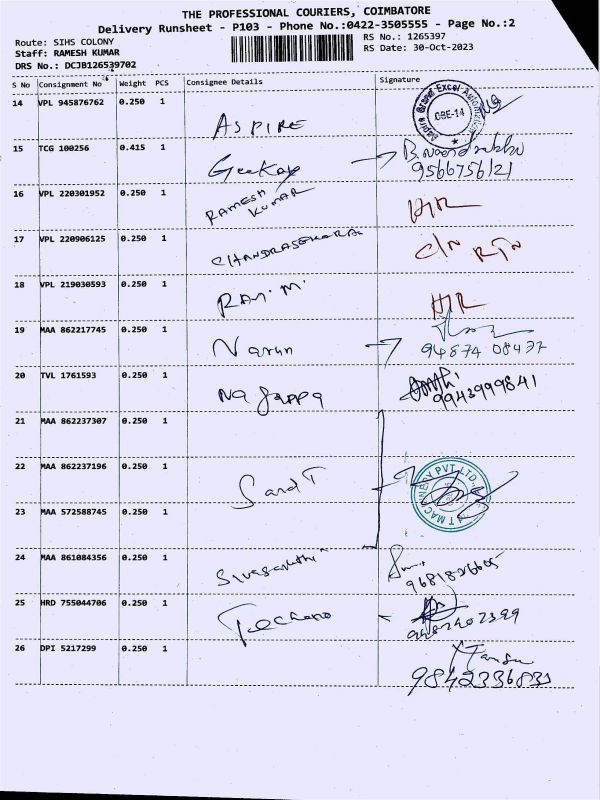 THE PROFESSIONAL COURIERS, COIMBATORE
Delivery Runsheet - P103 - Phone No.:0422-3505555 - Page No.:2
Route: SIHS COLONY
Staff: RAMESH KUMAR
DRS No.: DCJB126539702
RS No.: 1265397
RS Date: 30-Oct-2023
S No Consignment No Weight PCS Consignee Details Signature
14 VPL 945876762 0.250 1 ASPIRE
15 TCG 100256 0.415 1 Geekay
16 VPL 220301952 0.250 1 RAMESH KUMAR H/R
17 VPL 220906125 0.250 1 CHANDRASEKARAN C/N RTN
18 VPL 219030593 0.250 1 RAVI. M. H/R
19 MAA 862217745 0.250 1 Narun 94874 08437
20 TVL 1761593 0.250 1 Nagappa 9943999841
21 MAA 862237307 0.250 1
22 MAA 862237196 0.250 1 Sand T
23 MAA 572588745 0.250 1
24 MAA 861084356 0.250 1
25 HRD 755044706 0.250 1
26 DPI 5217299 0.250 1